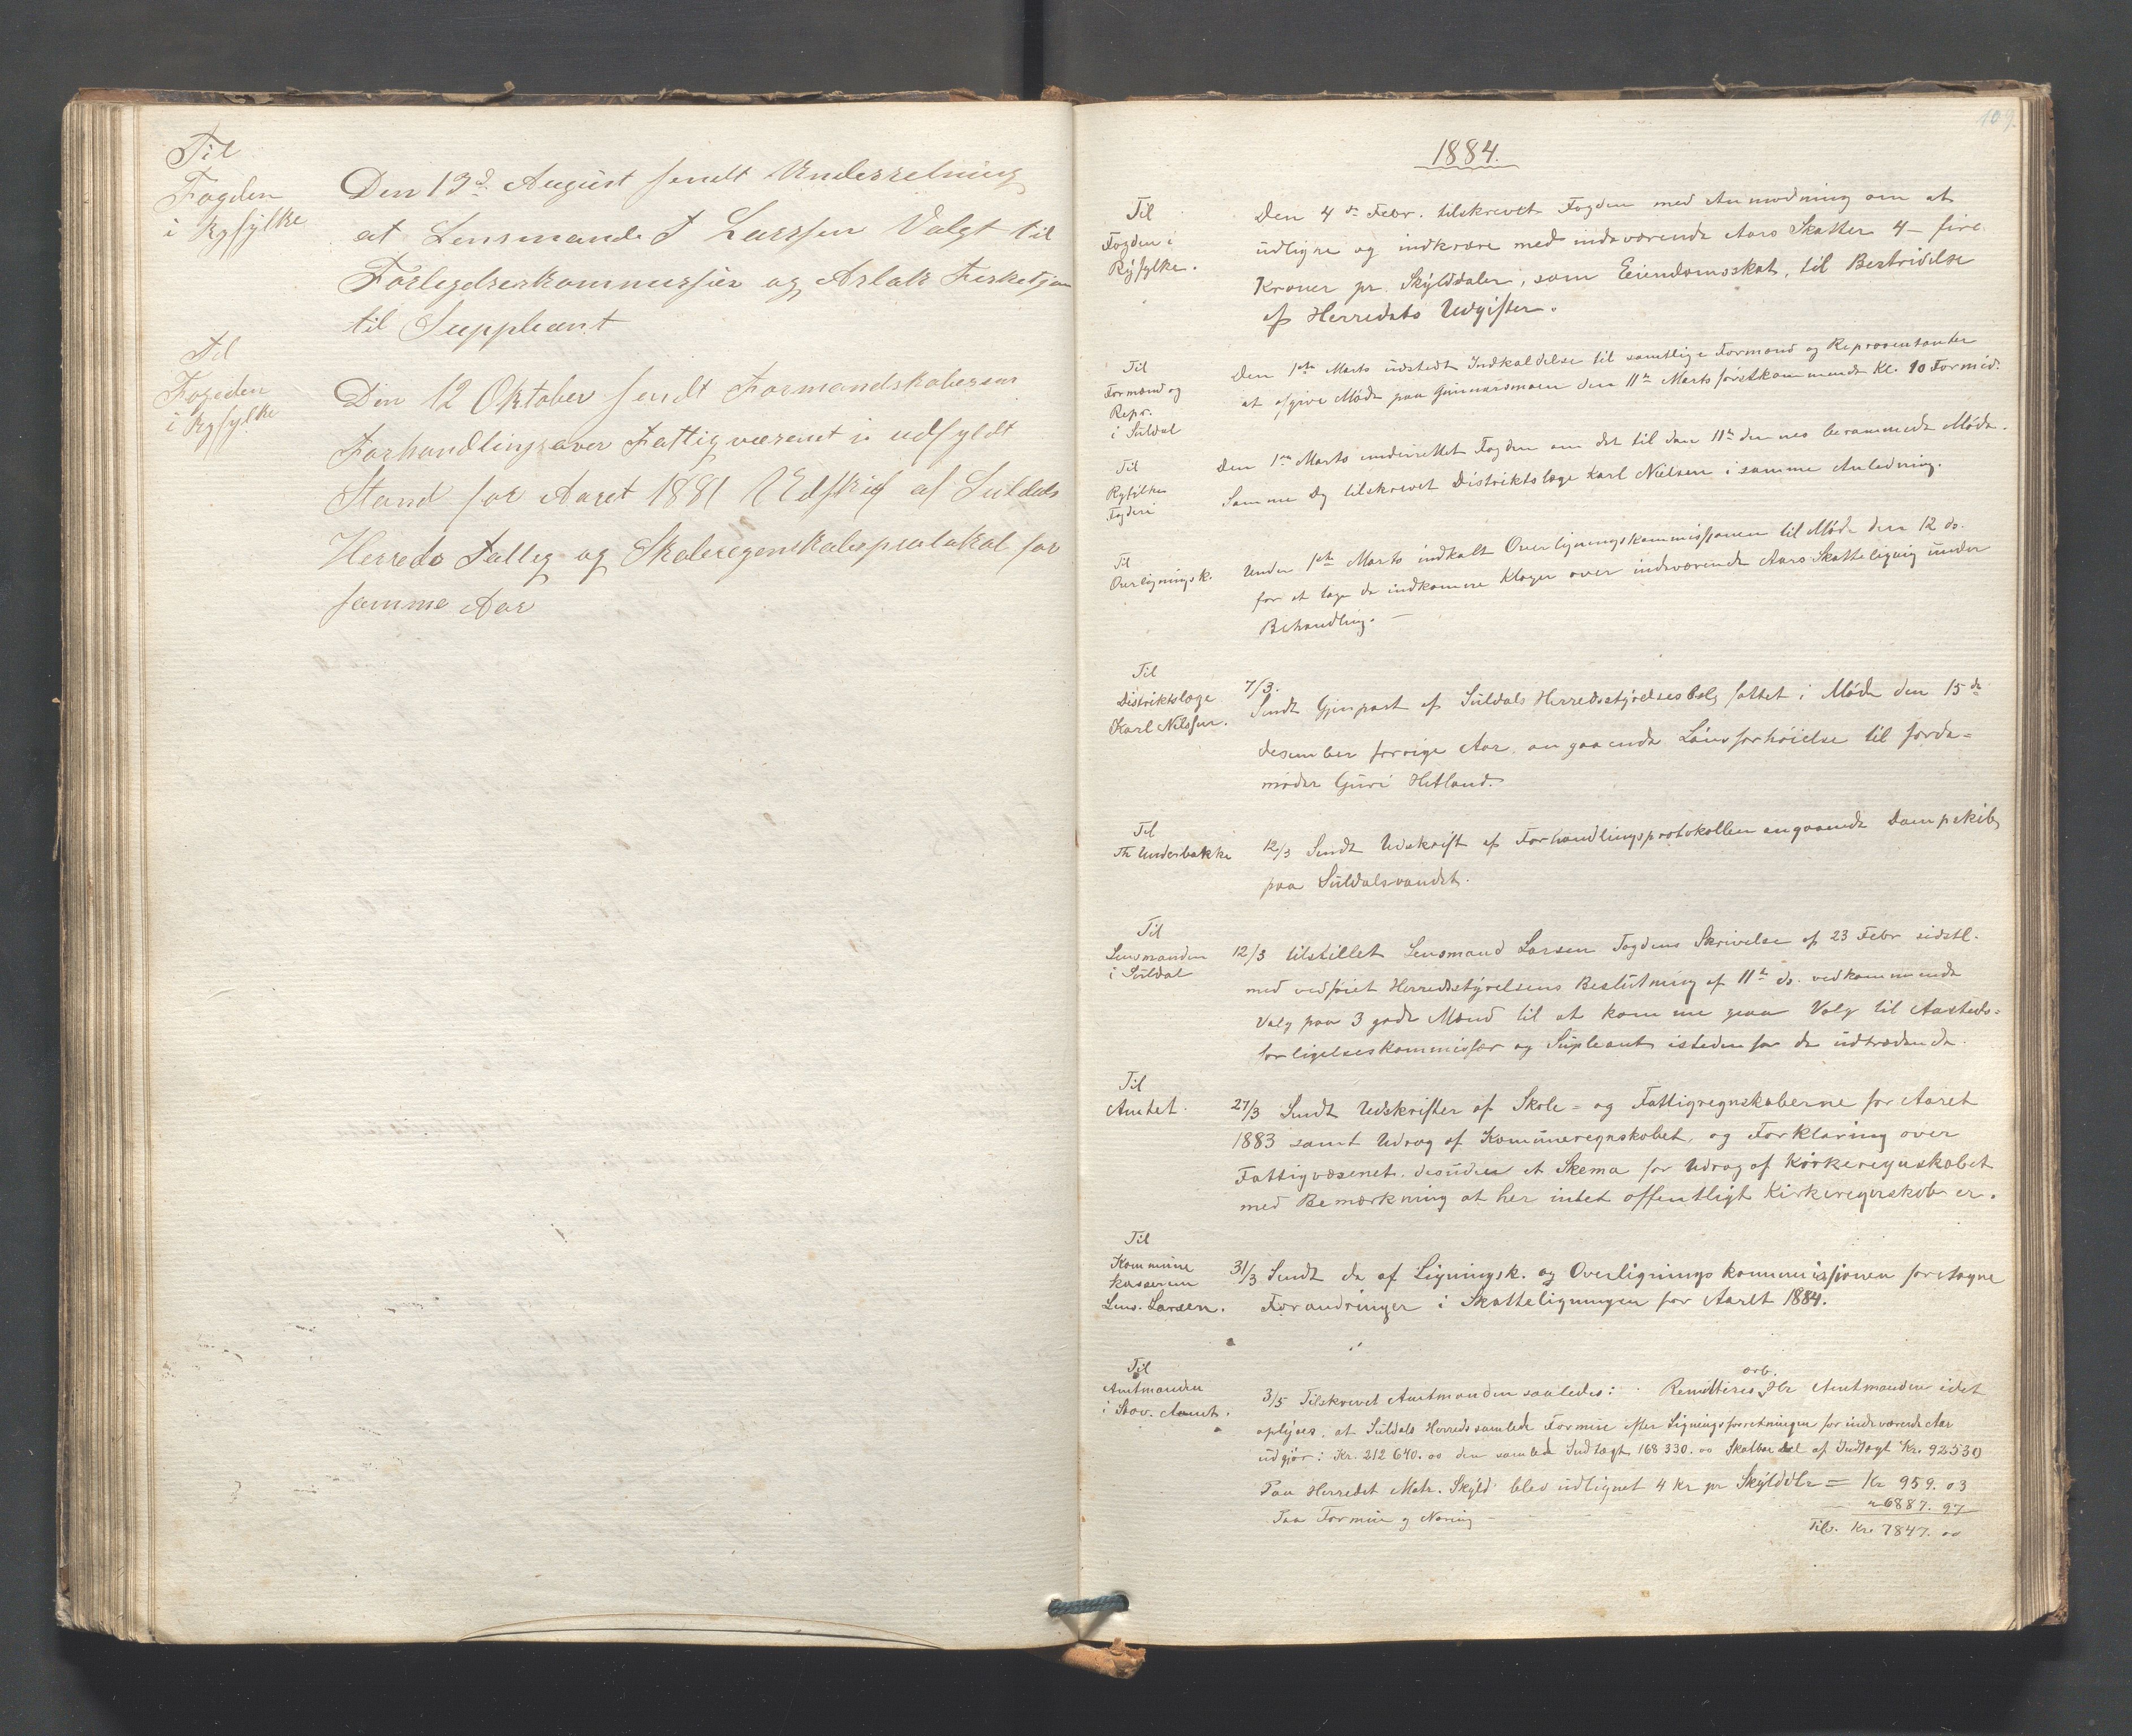 Til
Fogden
i Ryfylke
Den 13de August sendt Underretning
at Lensmand T Larsen Valgt til
Forlegelseskommissær og Aslak Fisketjøn
til Suppleant
Til
Fogeden
i Ryfylke
Den 12 Oktober sendt Formandskabernes
Forhandling over Fattigvæsenet i udfyldt
Stand for Aaret 1881 Udskrift af Suldals
Herreds Fattig og Skoleregenskabsprotokol for
samme Aar
109.
1884.
Til
Fogden i
Ryfylke.
Den 4de Febr. tilskrevet Fogden med Anmodning om at
udligne og indkræve med indeværende Aars Skatter 4 - fire
Kroner pr. Skylddaler, som Eiendomsskat, til Bestridelse
af Herredets Udgifter.
Til
Formænd og
Repr.
i Suldal
Den 1ste Marts udstedt Indkaldelse til samtlige Formænd og Repræsentanter
at afgive Møde paa Gunnarsmoen den 11te Marts førstkommende Kl. 10 Formid.
Til
Ryfilkes
Fogderi
Den 1ste Marts underrettet Fogden om det til den 11te dennes berammede Møde.
Samme Dg tilskrevet Distriktslæge Karl Nielsen i samme Anledning.
Til
Overligningsk.
Under 1ste Marts indkalt Overligningskommissionen til Møde den 12 ds.
for at tage de indkomne Klager over indeværende Aars Skatteligning under
Behandling. -
Til
Distriktslæge
Karl Nilssen.
7/3.
Sendt Gjenpart af Suldals Herredsstyrelsesbesl. fattet i Møde den 15de
desember forrige Aar, angaaende Lønsforhøielse til Jorde=
moder Guri Hetland.
Til
Th Underbakke
12/3 Sendt Udskrift af Forhandlingsprotokollen angaaende Dampskib
paa Suldalsvandet.
Til
Lensmanden
i Suldal
12/3 tilstillet Lensmand Larsen Fogdens Skrivelse af 23 Febr sidstl.
med vedføiet Herredsstyrelsens Beslutning af 11te ds. vedkommende
Valg paa 3 gode Mænd til at komme paa Valg til Aasteds=
forligelseskommissær og Supleant istedenfor de udtrædende.
Til
Amtet.
27/3 Sendt Udskrifter af Skole= og Fattigregnskaberne for Aaret
1883 samt Udrag af Kommuneregnskabet, og Forklaring over
Fattigvæsenet, desuden et Skema for Udrag af Kirkeregnskabet
med Bemærkning at her intet offentligt Kirkeregnskab er.
Til
Kommune
kasseren
Lens. Larsen.
31/3 Sendt de af Ligningsk. og Overligningskommissionen foretagne
Forandringer i Skatteligningen for Aaret 1884.
Til
Amtmanden
i Stav. Amt.
3/5 Tilskrevet Amtmanden saaledes: Remitteres ærb. Hr Amtmanden idet
oplyses, at Suldals Herreds samlede Formue efter Ligningsforretningen for indeværende Aar
udgjør: Kr. 212 640.00 den samlede Indtægt 168 330.00 Skatbar del af Indtægt Kr. 92530
Paa Herredet Matr. Skyld blev udlignet 4 Kr pr Skylddlr = Kr 959.03
Paa Formue og Næring - - - - " 6887.97
Tils. Kr. 7847.00